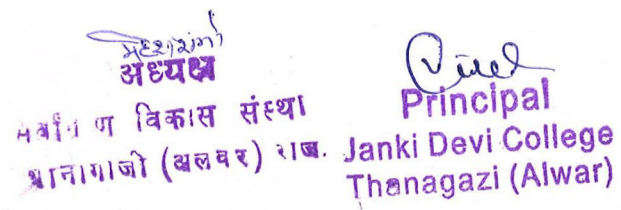 अध्यक्ष
विकास संस्था
थानागाजी (अलवर) राज.
Principal
Janki Devi College
Thanagazi (Alwar)